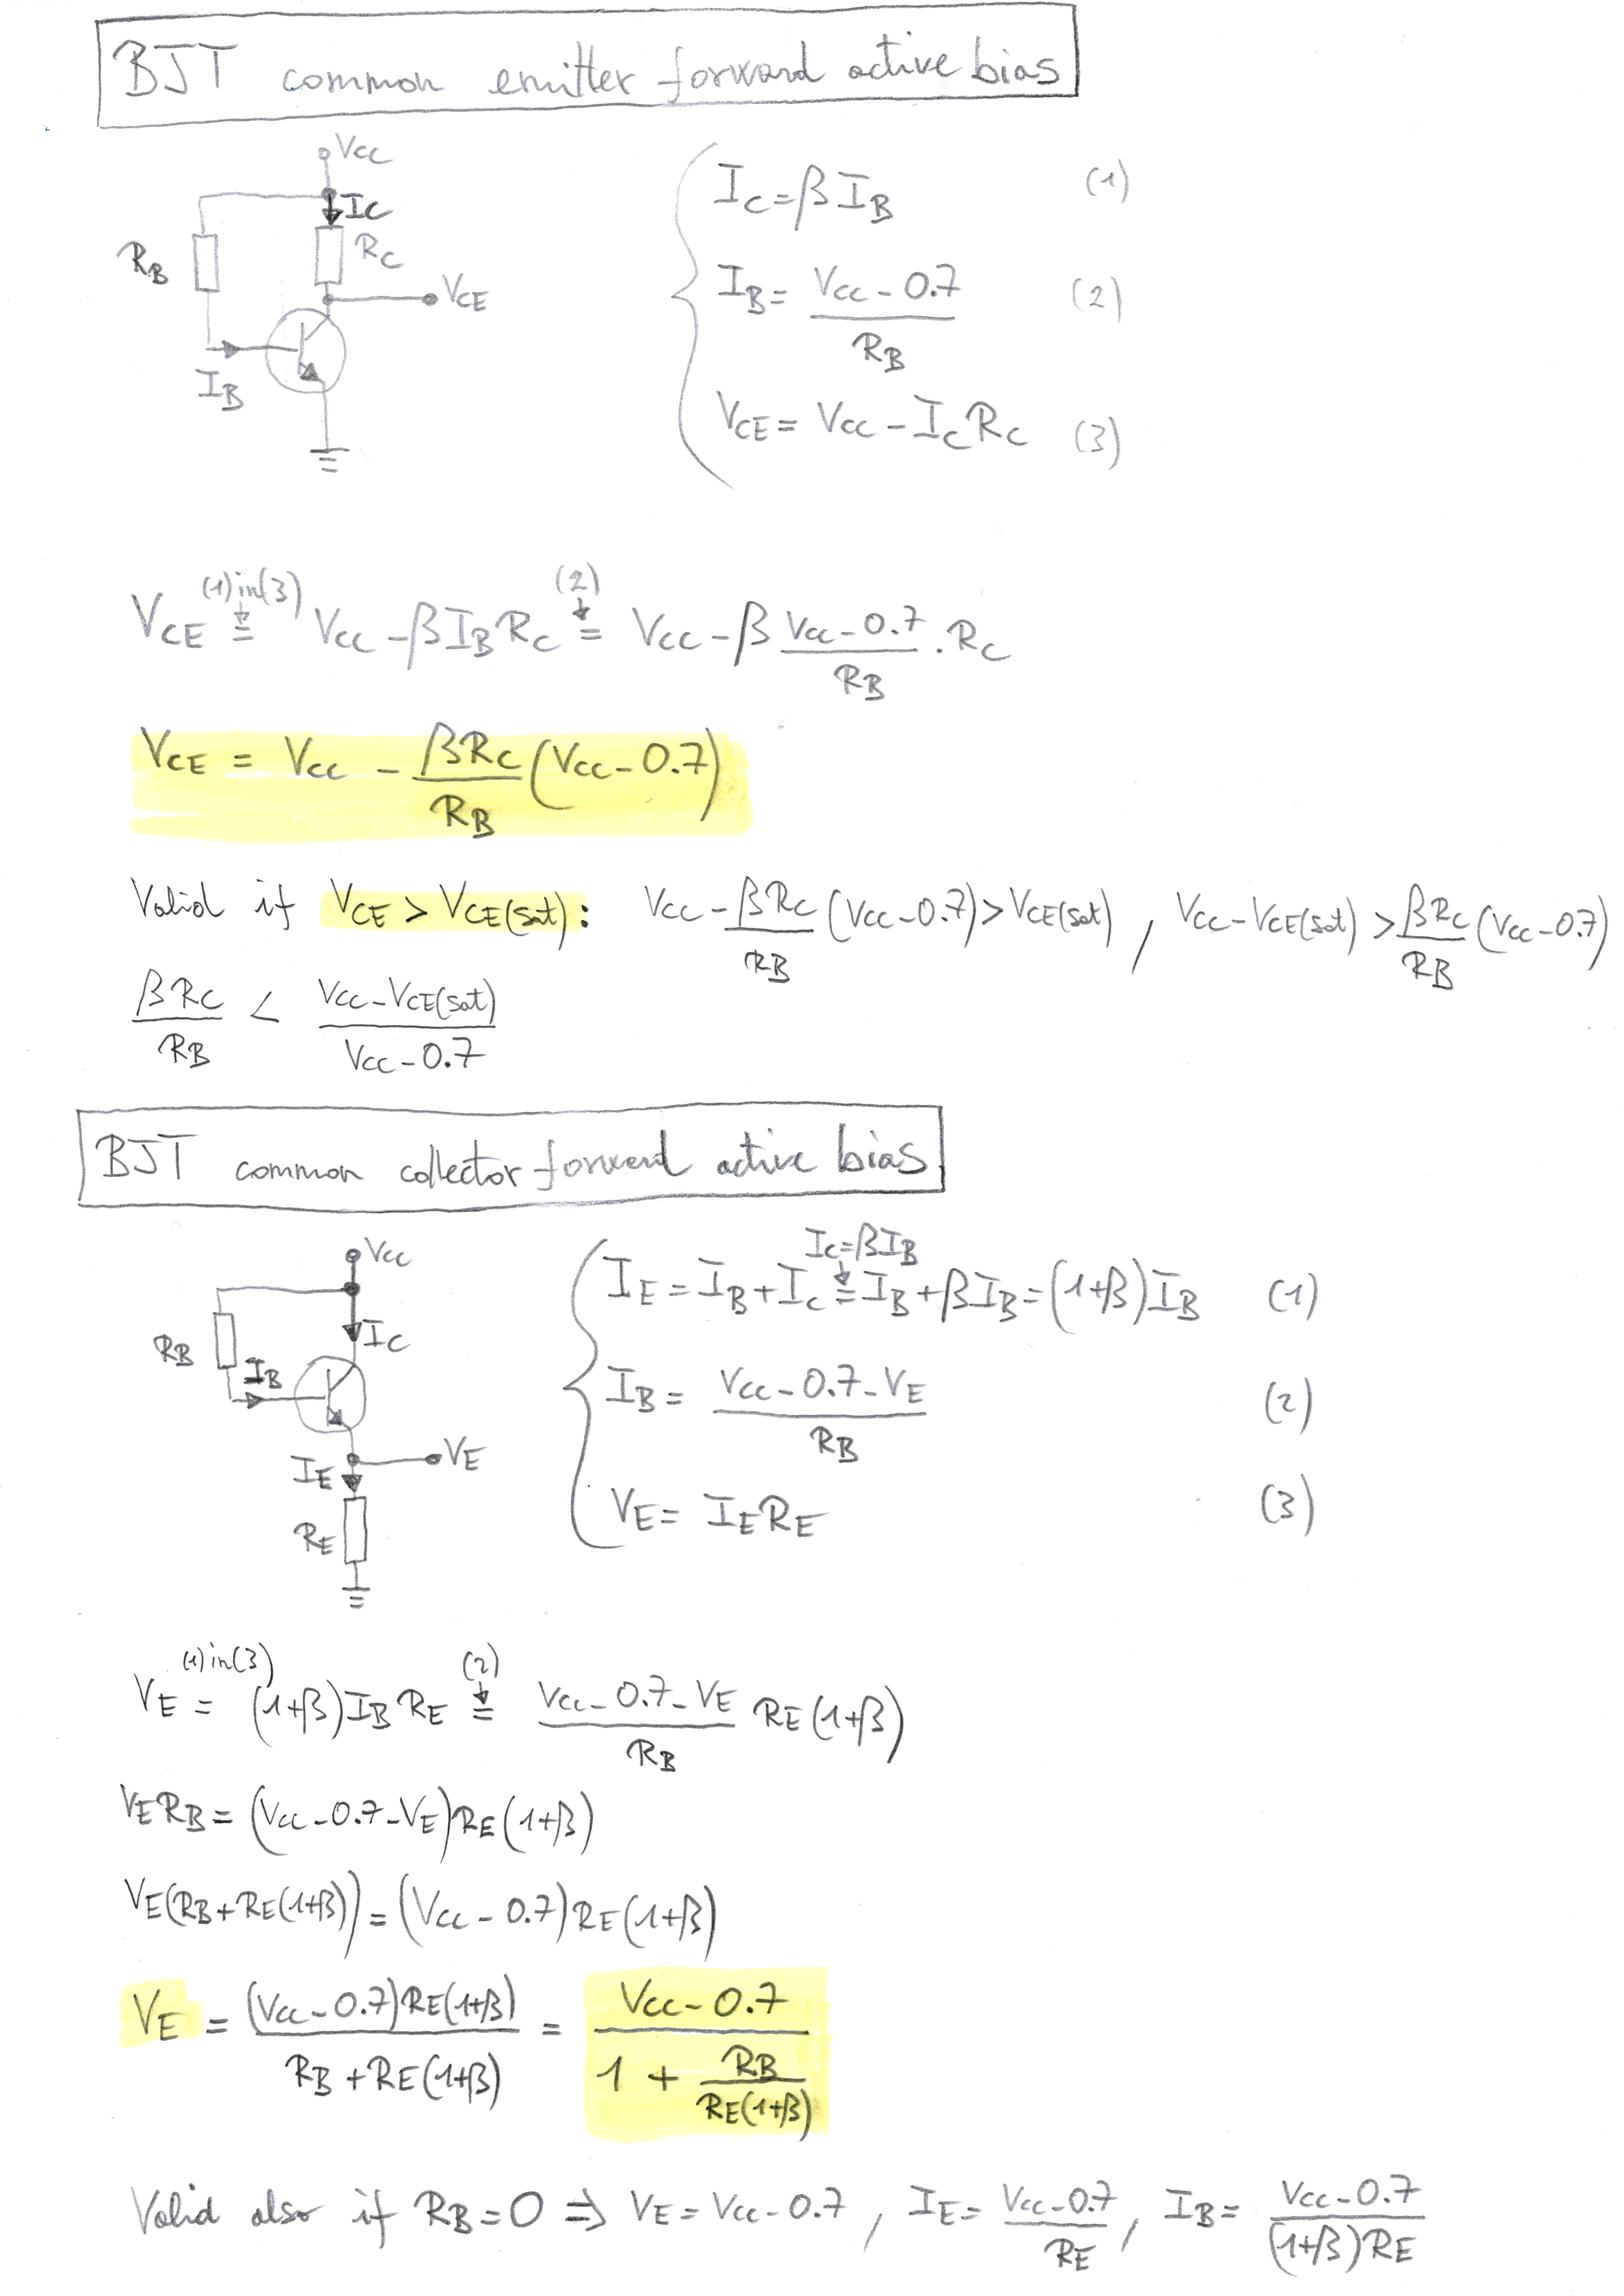 BJT common emitter forward active bias
Vcc
IC
RB
RC
VCE
IB
IC = βIB (1)
IB = (Vcc - 0.7) / RB (2)
VCE = Vcc - ICRC (3)
VCE = (1) in (3) Vcc - βIBRC = (2) Vcc - β (Vcc - 0.7) / RB . RC
VCE = Vcc - βRC / RB (Vcc - 0.7)
Valid if VCE > VCE(sat): Vcc - βRC / RB (Vcc - 0.7) > VCE(sat) , Vcc - VCE(sat) > βRC / RB (Vcc - 0.7)
βRC / RB < (Vcc - VCE(sat)) / (Vcc - 0.7)
BJT common collector forward active bias
Vcc
IC
RB
IB
VE
IE
RE
IC = βIB
IE = IB + IC = IB + βIB = (1+β)IB (1)
IB = (Vcc - 0.7 - VE) / RB (2)
VE = IERE (3)
VE = (1) in (3) (1+β)IBRE = (2) (Vcc - 0.7 - VE) / RB RE(1+β)
VERB = (Vcc - 0.7 - VE)RE(1+β)
VE(RB + RE(1+β)) = (Vcc - 0.7)RE(1+β)
VE = (Vcc - 0.7)RE(1+β) / (RB + RE(1+β)) = (Vcc - 0.7) / (1 + RB / RE(1+β))
Valid also if RB = 0 ⇒ VE = Vcc - 0.7 , IE = (Vcc - 0.7) / RE , IB = (Vcc - 0.7) / (1+β)RE